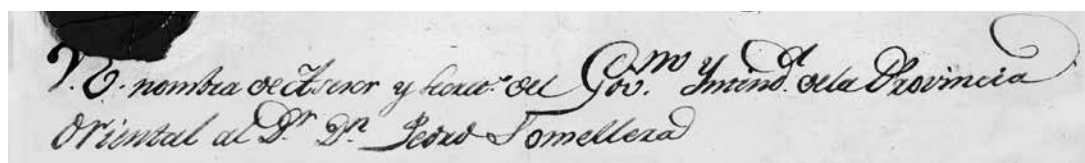 V.E. nombra de Asesor y Secret.º del Gov.no y Intend.a de la Provincia
Oriental al D.r D.n Pedro Somellera